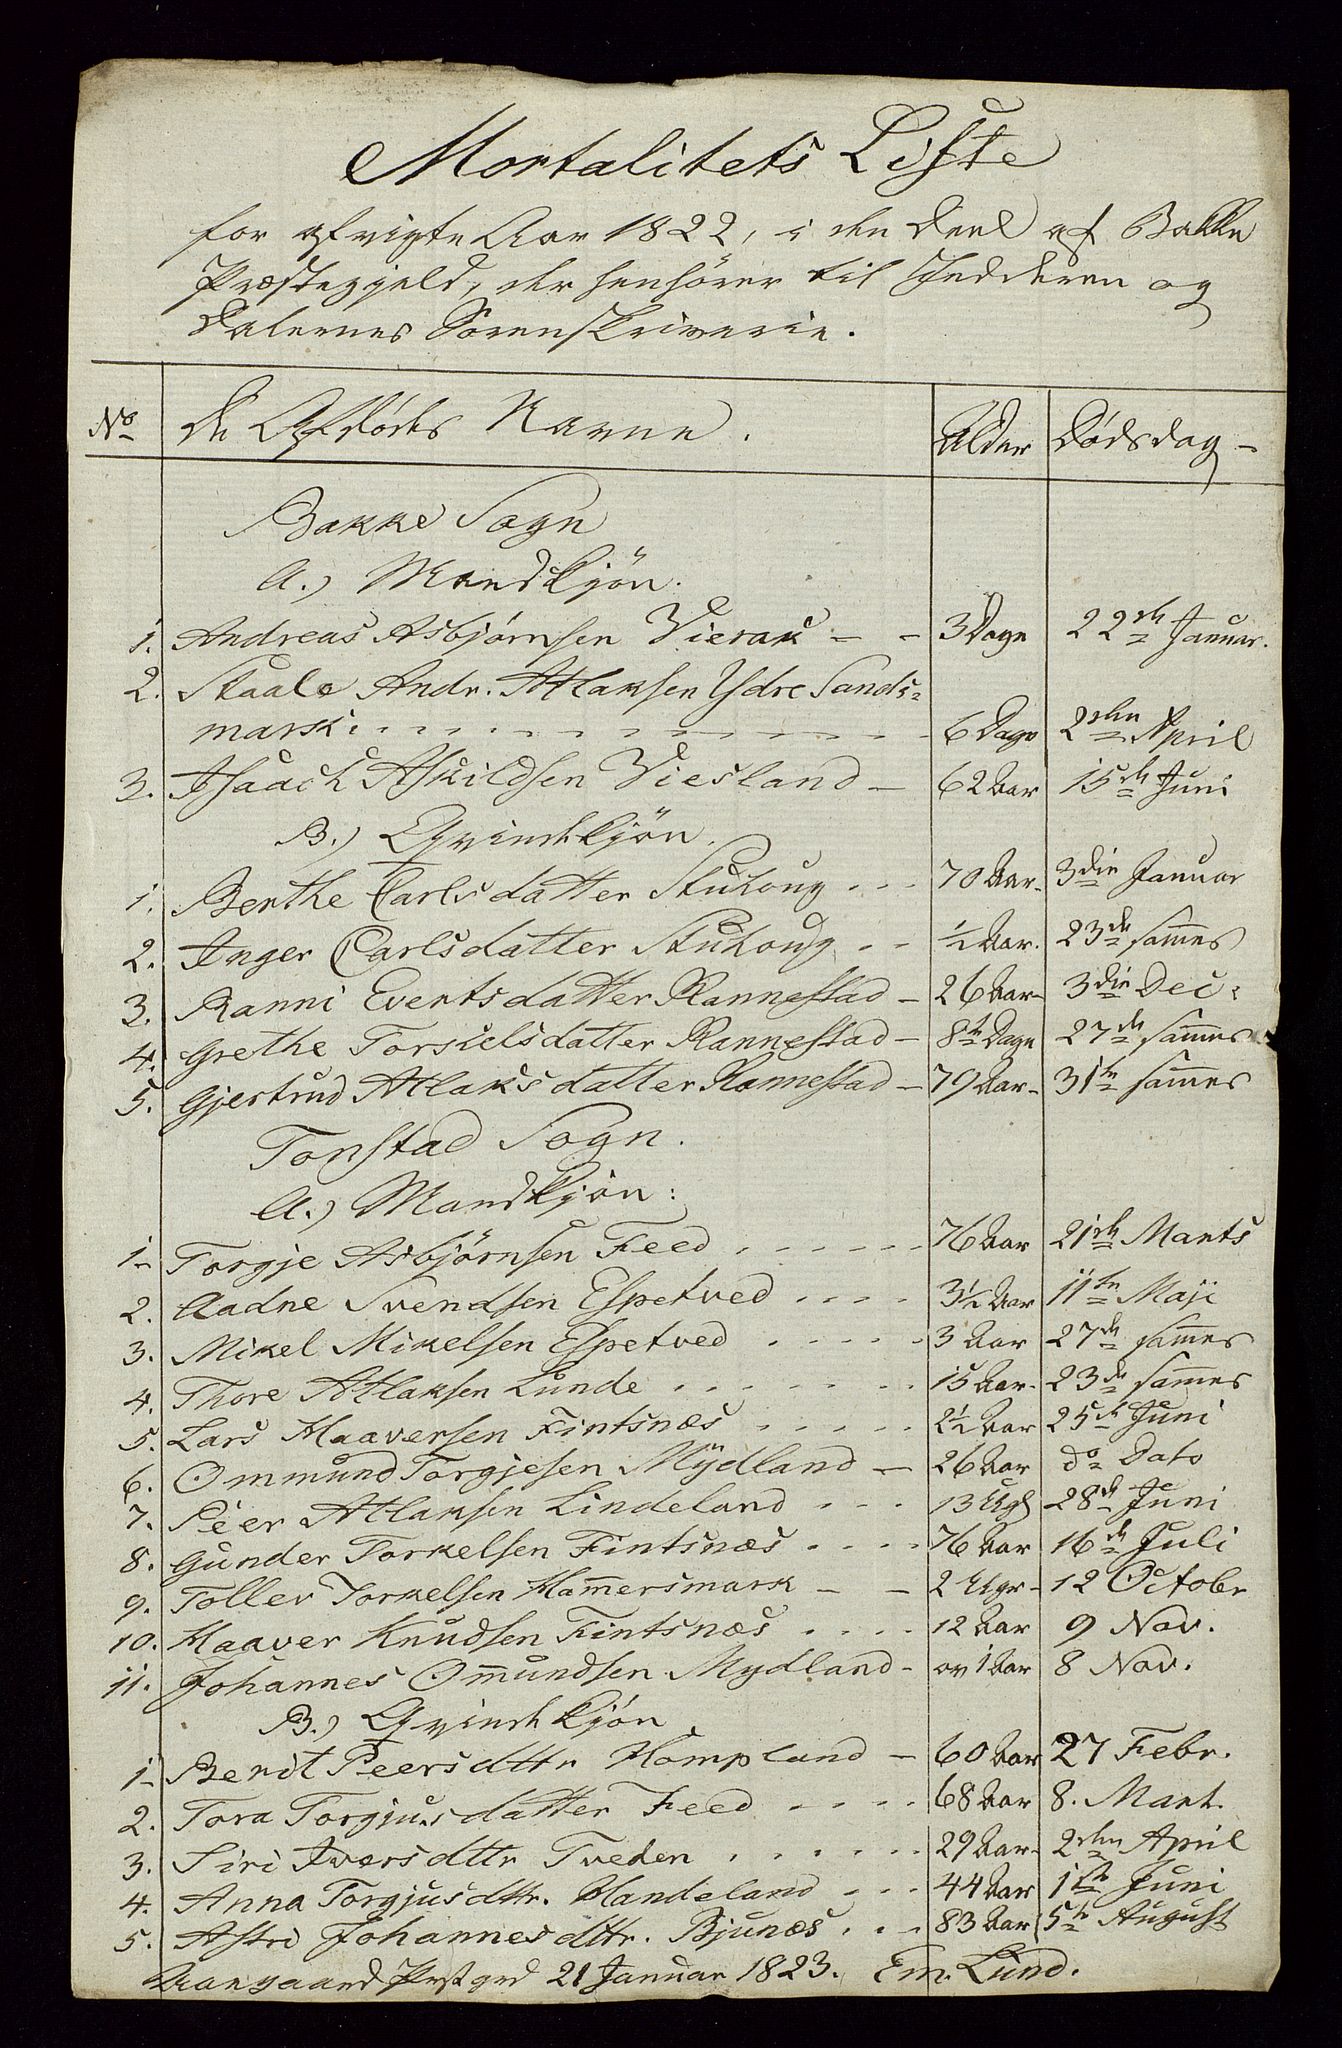 Mortalitets Liste
for afvigte Aar 1822, i den Deel af Bakke
Præstegjeld, der henhører til Jedderen og
Dalernes Sorenskriverie.
No De Afdødes Navne. Alder Dødsdag
Bakke Sogn
A.) Mandkjön.
1. Andreas Asbjørnsen Vierak - - 3 Dage 22de Januar.
2. Staale Andr. Atlaksen Ydre Sands-
mark 6 Dage 2den April
3. Isaach Askildsen Viesland - 62 Aar 15de Juni
B.) Qvindekjön.
1. Berthe Carlsdatter Stuhoug 70 Aar 3die Januar
2. Inger Carlsdatter Stuhoug ½ Aar. 23de sam̄es
3. Ranni Evertsdatter Rannestad - 26 Aar 3die Dec:
4. Grethe Torkelsdatter Rannestad - 8te Dage 27de sam̄es
5. Gjertrud Atlaksdatter Rannestad - 79 Aar - 31te sam̄es
Tonstad Sogn.
A.) Mandkjön:
1- Torgje Asbjørnsen Feed 76 Aar 21de Marts
2. Aadne Svendsen Espetved 3½ Aar 11te Maji
3. Mikel Mikelsen Espetved 3 Aar 27de sam̄es
4. Thore Atlaksen Lunde 15 Aar. 23de sam̄es
5. Lars Haaversen Fintsnæs 2½ Aar 25de Juni
6. Ommund Torgjesen Mÿdland - 26 Aar do Dato
7. Peer Atlaksen Lindeland 13 Ugh 28de Juni
8. Gunder Torkelsen Fintsnæs 76 Aar 16de Juli
9. Toller Torkelsen Ham̄ersmark - - 2 Uger - 12 Octobr
10. Haaver Knudsen Fintsnæs 12 Aar 9 Nov.
11. Johannes Om̄undsen Mydland - ov 1 Aar 8 Nov.
B.) Qvindekjön
1- Berit Peersdttr Hompland - 60 Aar 27 Febr.
2. Tora Torgjusdatter Feed 68 Aar 8. Mart.
3. Siri Iversdttr Tveden 29 Aar 2den April
4. Anna Torgjusdttr. Handeland 44 Aar 1ste Juni
5. Astri Johannesdttr. Bjunæs 83 Aar 5te August
Aamgaard Prstgrd 21 Januar 1823. Em. Lund.